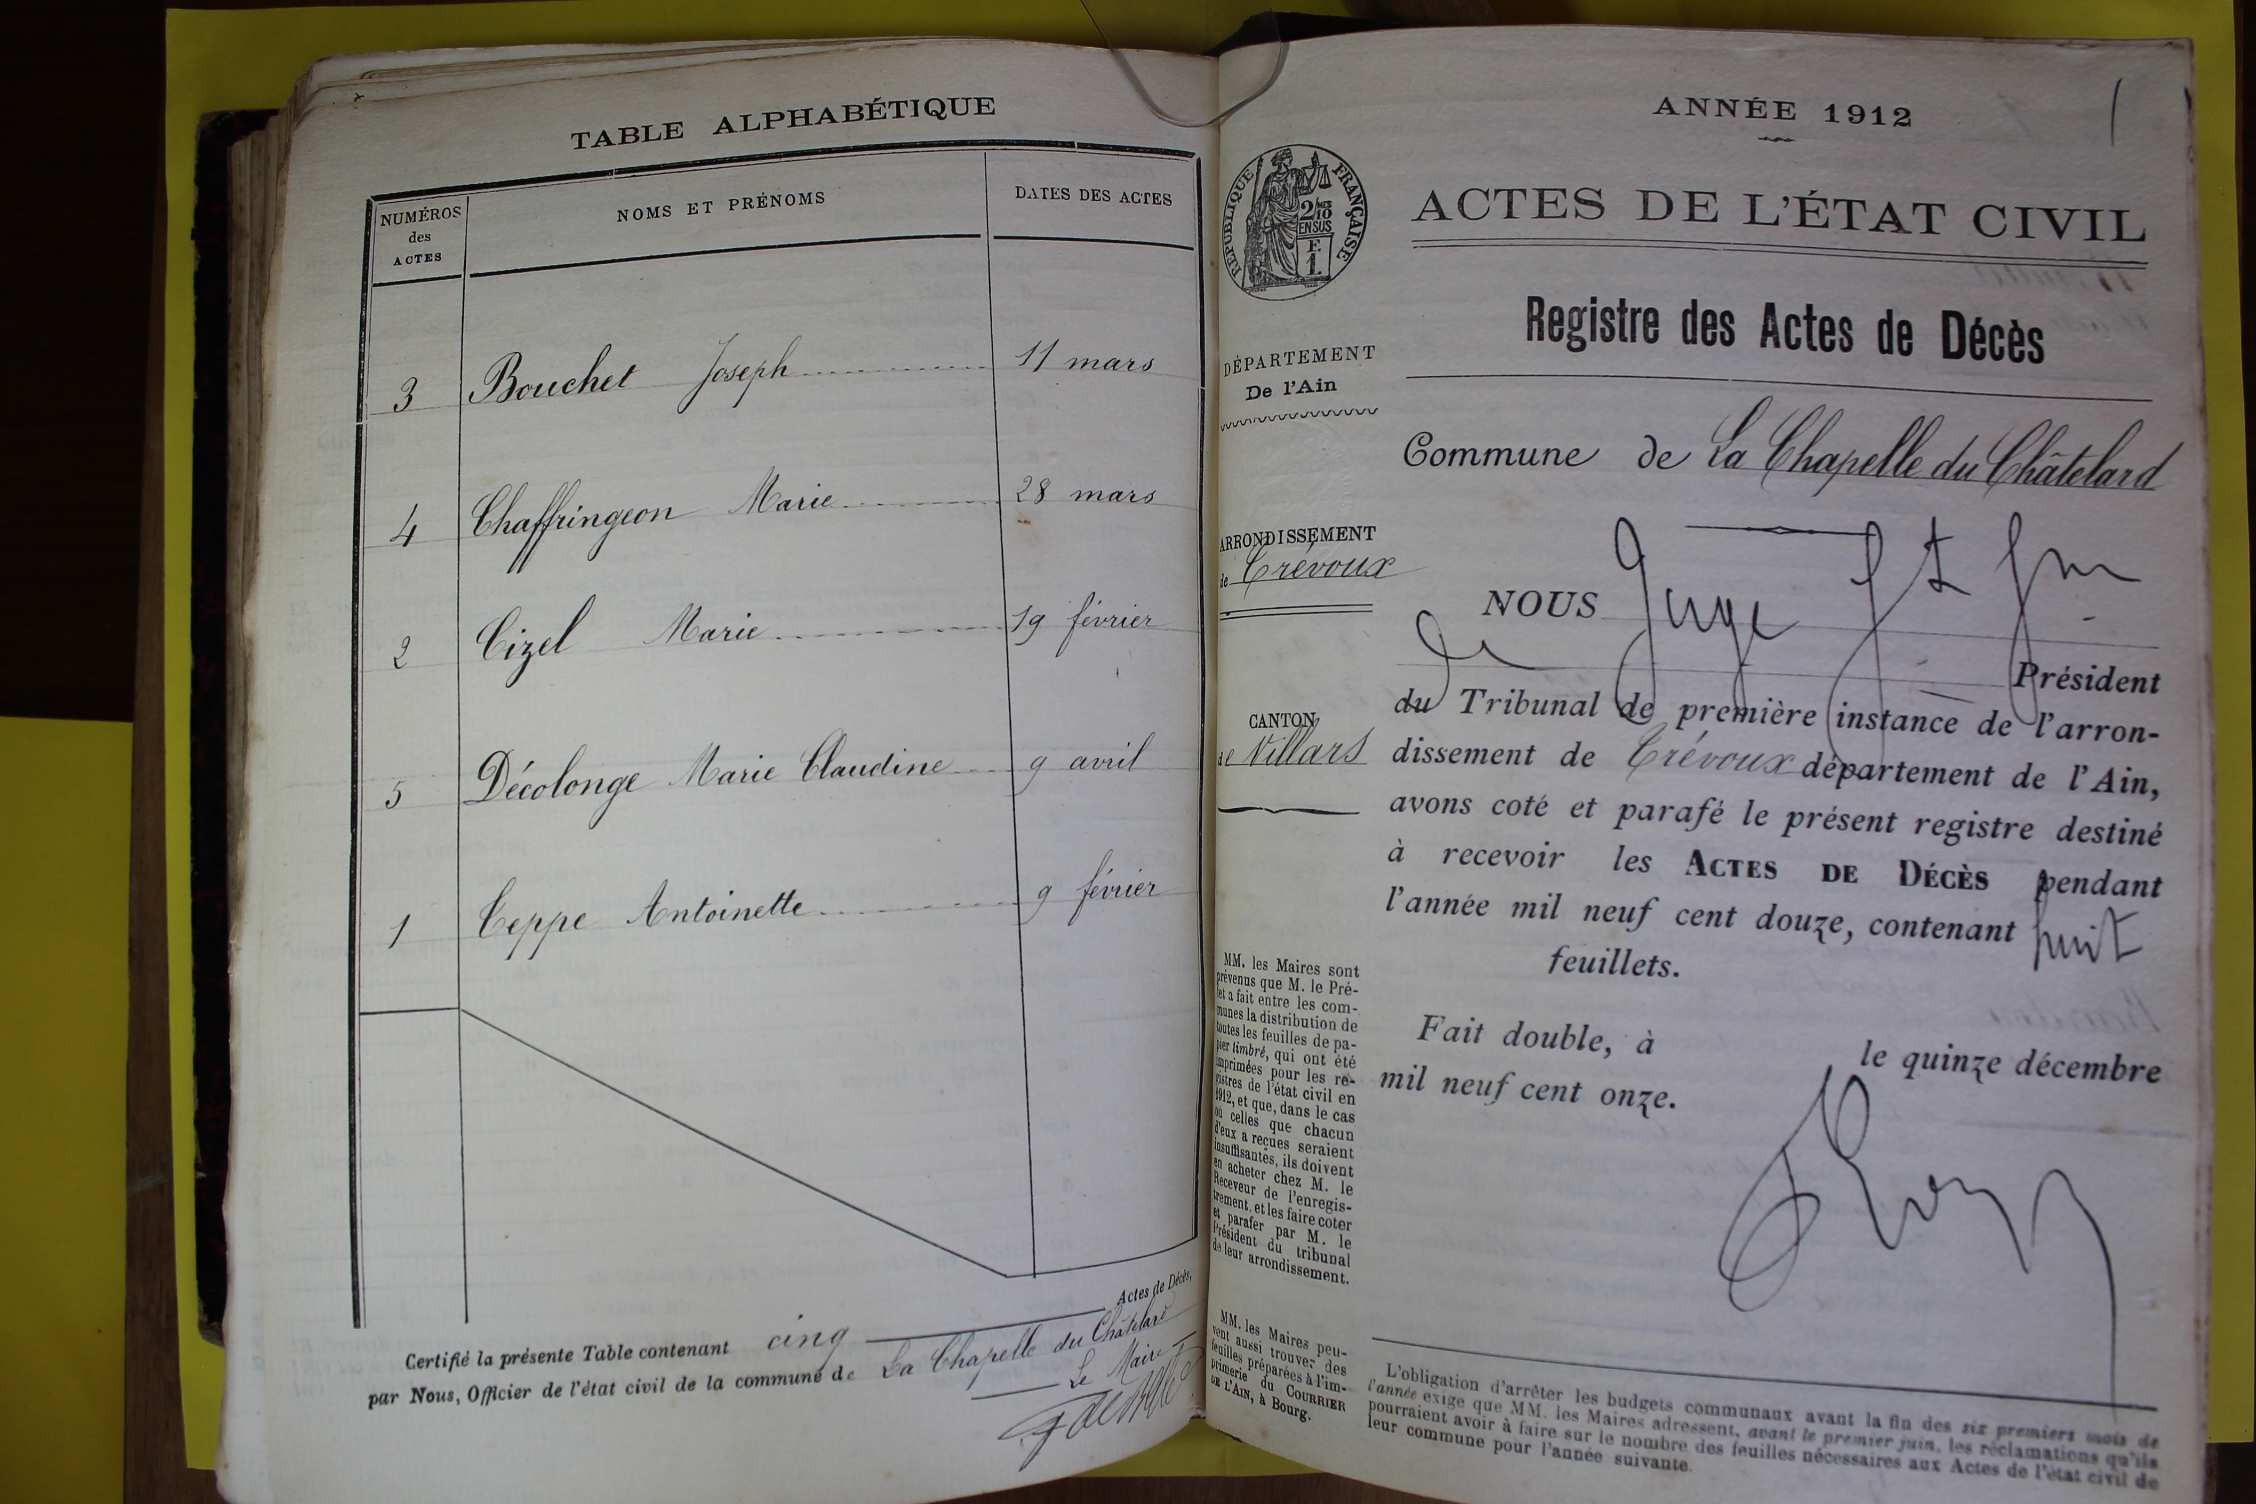 TABLE ALPHABÉTIQUE
NUMÉROS des ACTES
NOMS ET PRÉNOMS
DATES DES ACTES
3 Bouchet Joseph 11 mars
4 Chaffringeon Marie 28 mars
2 Cizel Marie 19 février
5 Décolonge Marie Claudine 9 avril
1 Teppe Antoinette 9 février
Certifié la présente Table contenant cinq Actes de Décès,
par Nous, Officier de l'état civil de la commune de La Chapelle du Châtelard
Le Maire
ANNÉE 1912
1
RÉPUBLIQUE FRANÇAISE
2/10 EN SUS
F.
1.
ACTES DE L'ÉTAT CIVIL
Registre des Actes de Décès
DÉPARTEMENT
De l'Ain
ARRONDISSEMENT
de Trévoux
CANTON
de Villars
MM. les Maires sont
prévenus que M. le Pré-
fet a fait entre les com-
munes la distribution de
toutes les feuilles de pa-
pier timbré, qui ont été
imprimées pour les re-
gistres de l'état civil en
1912, et que, dans le cas
où celles que chacun
d'eux a reçues seraient
insuffisantes, ils doivent
en acheter chez M. le
Receveur de l'enregis-
trement, et les faire coter
et parafer par M. le
Président du tribunal
de leur arrondissement.
MM. les Maires peu-
vent aussi trouver des
feuilles préparées à l'im-
primerie du COURRIER
DE L'AIN, à Bourg.
Commune de La Chapelle du Châtelard
NOUS Juge
de Président
du Tribunal de première instance de l'arron-
dissement de Trévoux département de l'Ain,
avons coté et parafé le présent registre destiné
à recevoir les ACTES DE DÉCÈS pendant
l'année mil neuf cent douze, contenant huit
feuillets.
Fait double, à le quinze décembre
mil neuf cent onze.
L'obligation d'arrêter les budgets communaux avant la fin des six premiers mois de
l'année exige que MM. les Maires adressent, avant le premier juin, les réclamations qu'ils
pourraient avoir à faire sur le nombre des feuilles nécessaires aux Actes de l'état civil de
leur commune pour l'année suivante.